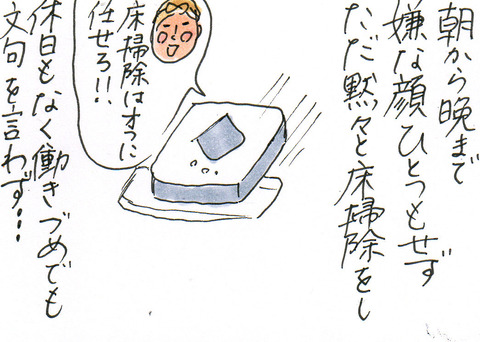 朝から晩まで
嫌な顔ひとつもせず
ただ黙々と床掃除をし
床掃除はオラに
任せろ!!
休日もなく働きづめでも
文句を言わず…